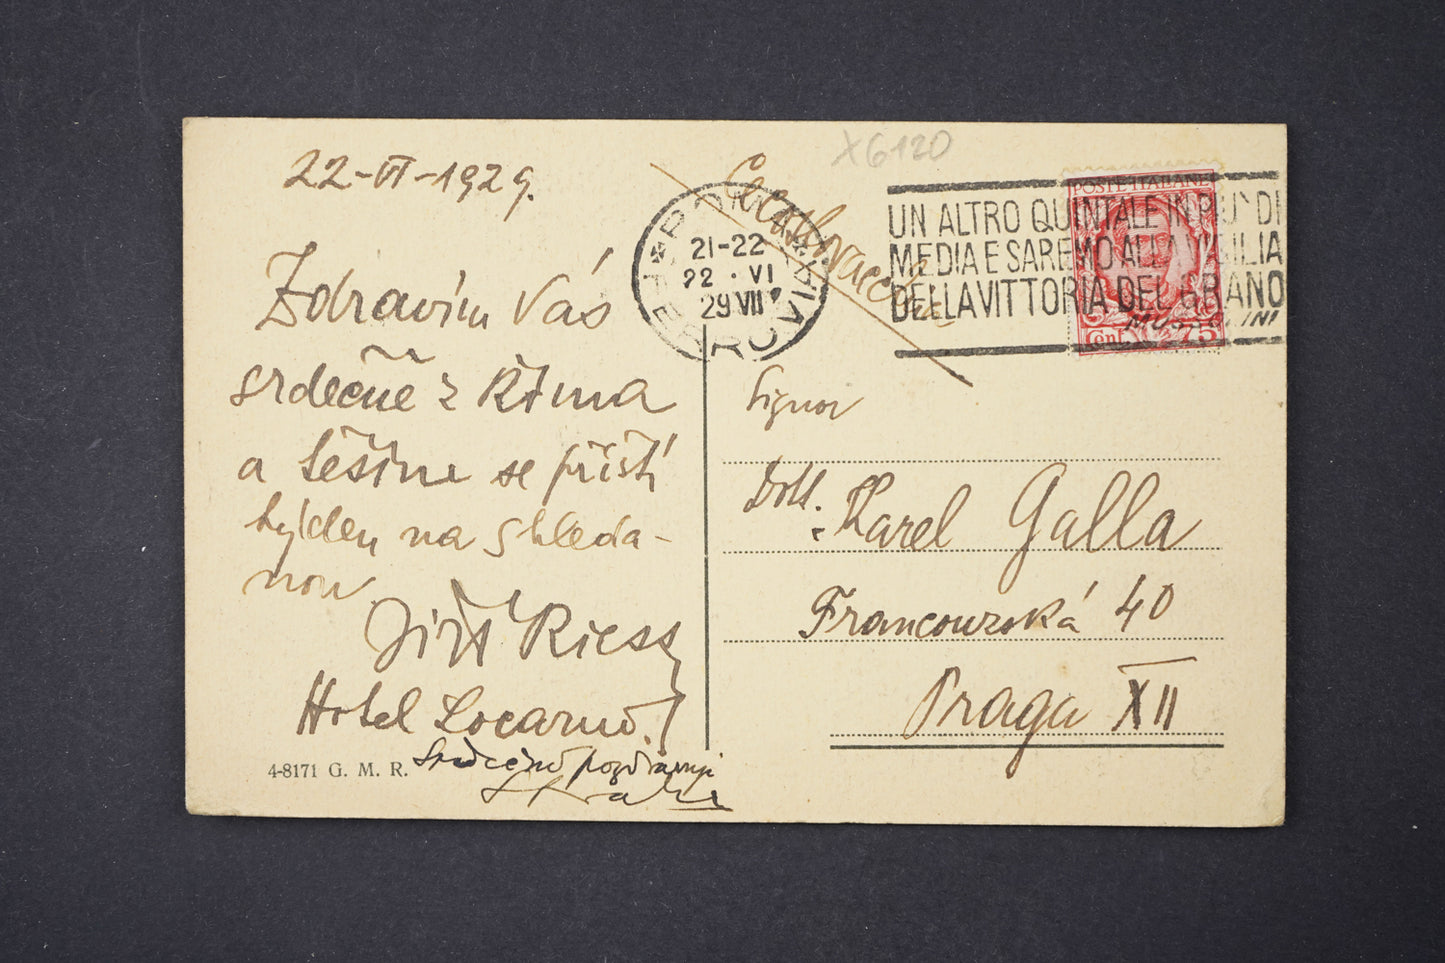 22-VI-1929.
Zdravím Vás
srdečně z Říma
a těšíme se příští
týden na shleda-
nou
Jiří Riess
Hotel Locarno.
Srdečně pozdravuje
4-8171 G. M. R.
X6120
Cecoslovacchia
ROMA FERROVIA
21-22
22 · VI
29 VII
UN ALTRO QUINTALE IN PIU` DI
MEDIA E SAREMO ALLA VIGILIA
DELLA VITTORIA DEL GRANO
MUSSOLINI
POSTE ITALIANE
Cent. 75
Signor
Dott. Karel Galla
Francouzská 40
Praga XII